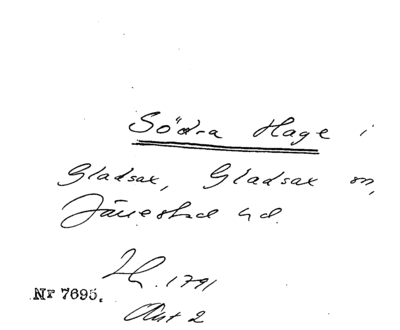 Södra Hage i
Gladsax, Gladsax sn,
Järrestad hd.
1791
Nr 7695.
Akt 2